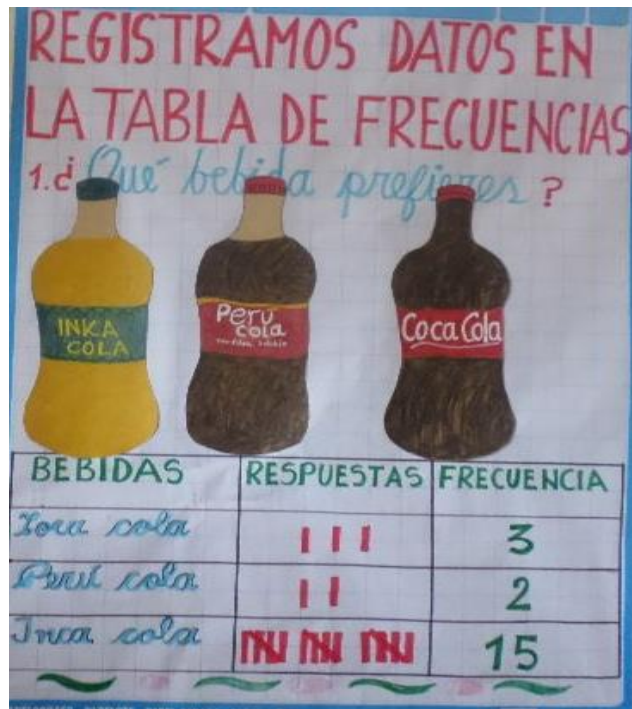 REGISTRAMOS DATOS EN
LA TABLA DE FRECUENCIAS
1. ¿Qué bebida prefieres?
INKA
COLA
Peru
cola
Coca Cola
BEBIDAS RESPUESTAS FRECUENCIA
Coca cola III 3
Perú cola II 2
Inca cola 15